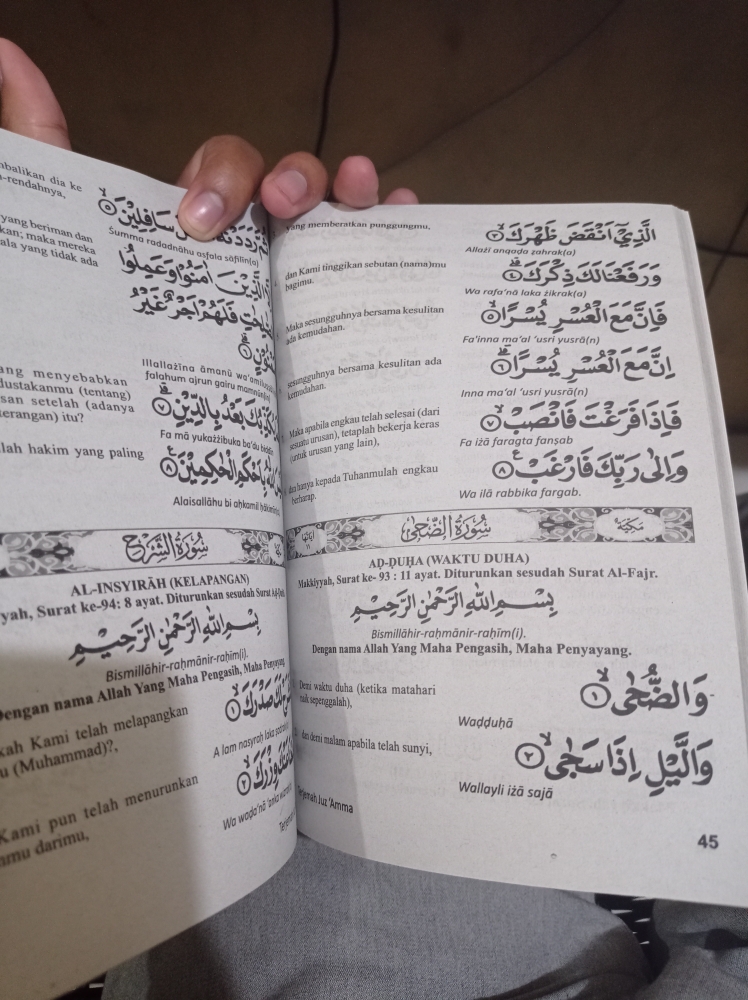 balikan dia ke
-rendahnya,
سَافِلِيْنَ ۝٥
Šumma radadnāhu asfala sāfilīn(a)
yang beriman dan
kan; maka mereka
ala yang tidak ada
الَّذِيْنَ اٰمَنُوْا وَعَمِلُوا
فَلَهُمْ اَجْرٌ غَيْرُ
Illallažīna āmanū wa'amiluṣ
falahum ajrun gairu mamnūn(in)
ang menyebabkan
dustakanmu (tentang)
san setelah (adanya
terangan) itu?
بَعْدُ بِالدِّيْنِ ۝٧
Fa mā yukažžibuka ba'du bid
lah hakim yang paling
بِاَحْكَمِ الْحٰكِمِيْنَ ۝٨
Alaisallāhu bi aḥkamil
سُوْرَةُ الشَّرْحِ
AL-INSYIRĀH (KELAPANGAN)
yah, Surat ke-94: 8 ayat. Diturunkan sesudah Surat
بِسْمِ اللّٰهِ الرَّحْمٰنِ الرَّحِيْمِ
Bismillāhir-raḥmānir-raḥīm(i).
Dengan nama Allah Yang Maha Pengasih, Maha Penyayang.
kah Kami telah melapangkan
u (Muhammad)?,
لَكَ صَدْرَكَ ۝١
A lam nasyraḥ laka
Kami pun telah menurunkan
nmu darimu,
وِزْرَكَ ۝٢
Wa waḍa'nā 'anka
yang memberatkan punggungmu,
الَّذِيْٓ اَنْقَضَ ظَهْرَكَ ۝٣
Allažī anqaḍa ẓahrak(a)
dan Kami tinggikan sebutan (nama)mu
bagimu.
وَرَفَعْنَا لَكَ ذِكْرَكَ ۝٤
Wa rafa'nā laka žikrak(a)
Maka sesungguhnya bersama kesulitan
ada kemudahan.
فَاِنَّ مَعَ الْعُسْرِ يُسْرًا ۝٥
Fa'inna ma'al 'usri yusrā(n)
sesungguhnya bersama kesulitan ada
kemudahan.
اِنَّ مَعَ الْعُسْرِ يُسْرًا ۝٦
Inna ma'al 'usri yusrā(n)
Maka apabila engkau telah selesai (dari
sesuatu urusan), tetaplah bekerja keras
(untuk urusan yang lain),
فَاِذَا فَرَغْتَ فَانْصَبْ ۝٧
Fa iżā faragta fanṣab
dan hanya kepada Tuhanmulah engkau
berharap.
وَاِلٰى رَبِّكَ فَارْغَبْ ۝٨
Wa ilā rabbika fargab.
اٰيَاتُهَا ١١ سُوْرَةُ الضُّحٰى مَكِّيَّةٌ
AḌ-ḌUḤA (WAKTU DUHA)
Makkiyyah, Surat ke- 93 : 11 ayat. Diturunkan sesudah Surat Al-Fajr.
بِسْمِ اللّٰهِ الرَّحْمٰنِ الرَّحِيْمِ
Bismillāhir-raḥmānir-raḥīm(i).
Dengan nama Allah Yang Maha Pengasih, Maha Penyayang.
Demi waktu duha (ketika matahari
naik sepenggalah),
وَالضُّحٰى ۝١
Waḍḍuḥā
dan demi malam apabila telah sunyi,
وَالَّيْلِ اِذَا سَجٰى ۝٢
Wallayli iżā sajā
Terjemah Juz 'Amma
45